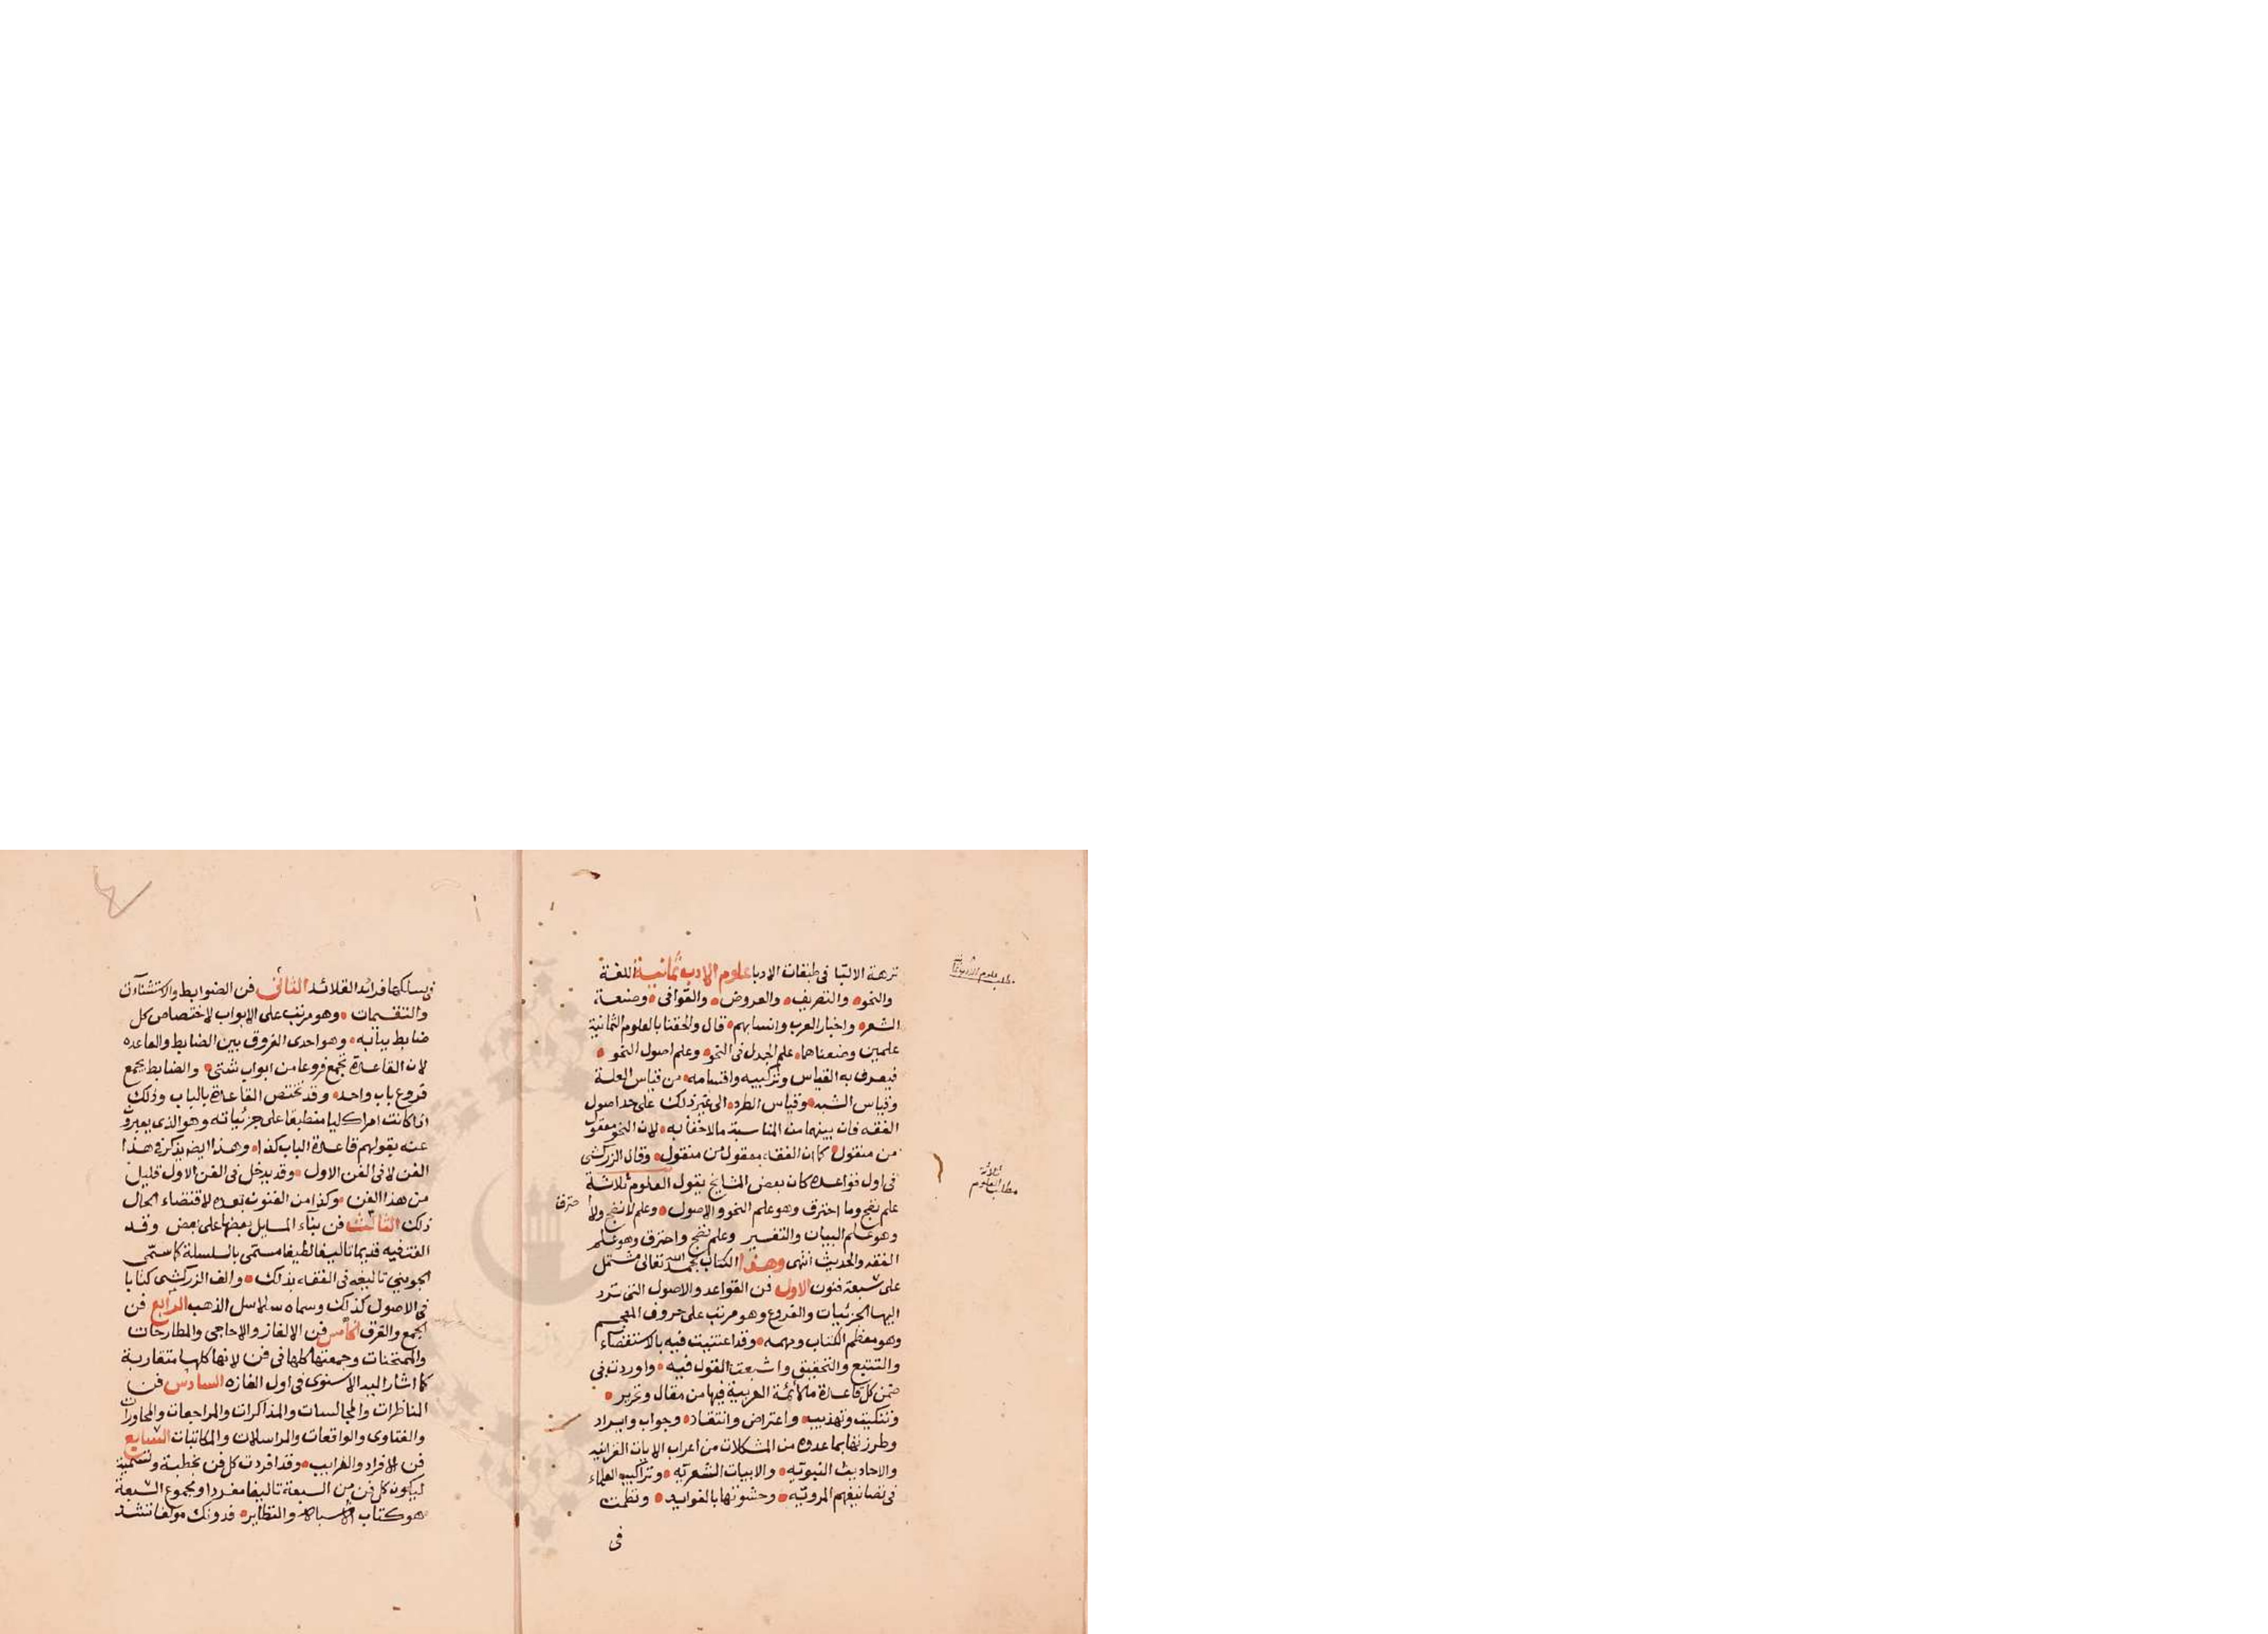 نزهة الالبا فى طبقات الادبا علوم الادب ثمانية اللغة
والنحو والتصريف والعروض والقوافى وصنعة
الشعر واخبار العرب وانسابهم قال والحقنا بالعلوم الثمانية
علمين وضعناهما علم الجدل فى النحو وعلم اصول النحو
فيعرف به القياس وتركيبه واقسامه من قياس العلة
وقياس الشبه وقياس الطرد الى غير ذلك على حد اصول
الفقه فان بينهما من المناسبة مالا خفا به لان النحو معقول
من منقول كما ان الفقه معقول من منقول وقال الزركشى
فى اول قواعده كان بعض المشايخ يقول العلوم ثلاثة
علم نضج وما احترق وهو علم النحو والاصول وعلم لا نضج ولا
احترق
وهو علم البيان والتفسير وعلم نضج واحترق وهو علم
الفقه والحديث انتهى وهذا الكتاب بحمد الله تعالى مشتمل
على سبعة فنون الاول فن القواعد والاصول التى ترد
اليها الجزئيات والفروع وهو مرتب على حروف المعجم
وهو معظم الكتاب ومهمه وقد اعتنيت فيه بالاستقصاء
والتتبع والتحقيق واشبعت القول فيه واوردت فى
ضمن كل قاعدة ما لائمة العربية فيها من مقال وتحرير
وتنكيت وتهذيب واعتراض وانتقاد وجواب وايراد
وطرزتها بما عدوه من المشكلات من اعراب الايات القرانيه
والاحاديث النبويه والابيات الشعريه وتراكيب العلماء
فى تصانيفهم المرويه وحشوتها بالفوايد ونظمت
فى
مطالب العلوم ثلاثة
فى سلكها فرائد القلائد الثانى فن الضوابط والاستثناءات
والتقسيمات وهو مرتب على الابواب لاختصاص كل
ضابط ببابه وهو احدى الفروق بين الضابط والقاعده
لان القاعدة تجمع فروعا من ابواب شتى والضابط يجمع
فروع باب واحد وقد تختص القاعدة بالباب وذلك
اذا كانت امرا كليا منطبقا على جزئياته وهو الذى يعبرون
عنه بقولهم قاعدة الباب كذا وهذا ايضا يذكر فى هذا
الفن لا فى الفن الاول وقد يدخل فى الفن الاول قليل
من هذا الفن وكذا من الفنون بعده لاقتضاء الحال
ذلك الثالث فن بناء المسايل بعضها على بعض وقد
الفت فيه قديما تاليفا لطيفا مسمى بالسلسلة كما سمى
الجوينى تاليفه فى الفقه بذلك والف الزركشى كتابا
فى الاصول كذلك وسماه سلاسل الذهب الرابع فن
الجمع والفرق الخامس فن الالغاز والاحاجى والمطارحات
والممتحنات وجمعتها كلها فى فن لانها كلها متقاربة
كما اشار اليه الاسنوى فى اول الغازه السادس فن
المناظرات والمجالسات والمذاكرات والمراجعات والمحاورات
والفتاوى والواقعات والمراسلات والمكاتبات السابع
فن الافراد والغرايب وقد افردت كل فن بخطبة وتسمية
ليكون كل فن من السبعة تاليفا مفردا ومجموع السبعة
هو كتاب الاشباه والنظاير فدونك مولفا تشد